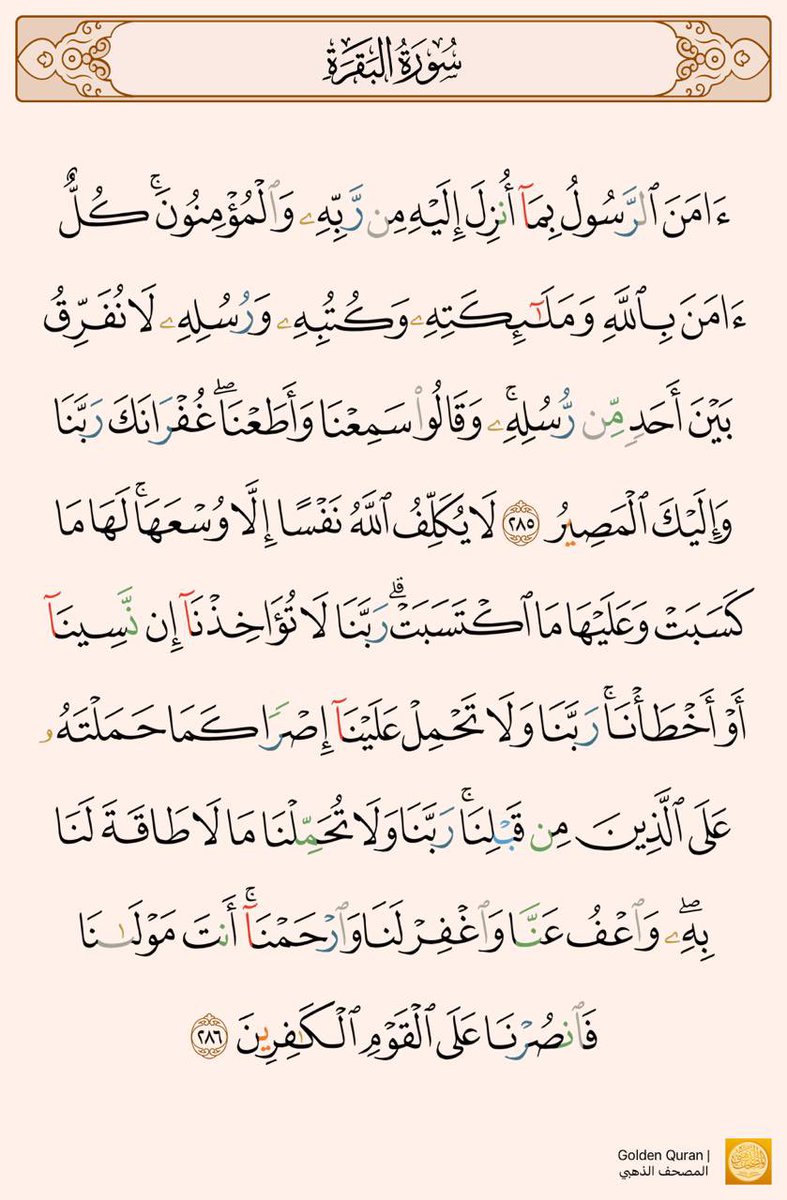 سُورَةُ البَقَرَةِ
ءَامَنَ ٱلرَّسُولُ بِمَآ أُنزِلَ إِلَيْهِ مِن رَّبِّهِۦ وَٱلْمُؤْمِنُونَ ۚ كُلٌّ
ءَامَنَ بِٱللَّهِ وَمَلَـٰٓئِكَتِهِۦ وَكُتُبِهِۦ وَرُسُلِهِۦ لَا نُفَرِّقُ
بَيْنَ أَحَدٍ مِّن رُّسُلِهِۦ ۚ وَقَالُوا۟ سَمِعْنَا وَأَطَعْنَا ۖ غُفْرَانَكَ رَبَّنَا
وَإِلَيْكَ ٱلْمَصِيرُ ٢٨٥ لَا يُكَلِّفُ ٱللَّهُ نَفْسًا إِلَّا وُسْعَهَا ۚ لَهَا مَا
كَسَبَتْ وَعَلَيْهَا مَا ٱكْتَسَبَتْ ۗ رَبَّنَا لَا تُؤَاخِذْنَآ إِن نَّسِينَآ
أَوْ أَخْطَأْنَا ۚ رَبَّنَا وَلَا تَحْمِلْ عَلَيْنَآ إِصْرًا كَمَا حَمَلْتَهُۥ
عَلَى ٱلَّذِينَ مِن قَبْلِنَا ۚ رَبَّنَا وَلَا تُحَمِّلْنَا مَا لَا طَاقَةَ لَنَا
بِهِۦ ۖ وَٱعْفُ عَنَّا وَٱغْفِرْ لَنَا وَٱرْحَمْنَآ ۚ أَنتَ مَوْلَىٰنَا
فَٱنصُرْنَا عَلَى ٱلْقَوْمِ ٱلْكَـٰفِرِينَ ٢٨٦
Golden Quran |
المصحف الذهبي